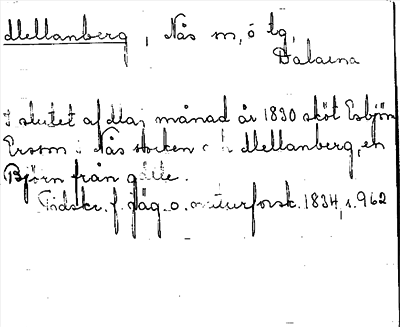 Mellanberg, Nås m, ö tg,
Dalarna
I slutet af Maj månad år 1830 sköt Esbjörn
Ersson i Nås socken och Mellanberg, en
Björn från gälle.
Tidskr. f. Jäg. o. naturforsk. 1834, s. 962